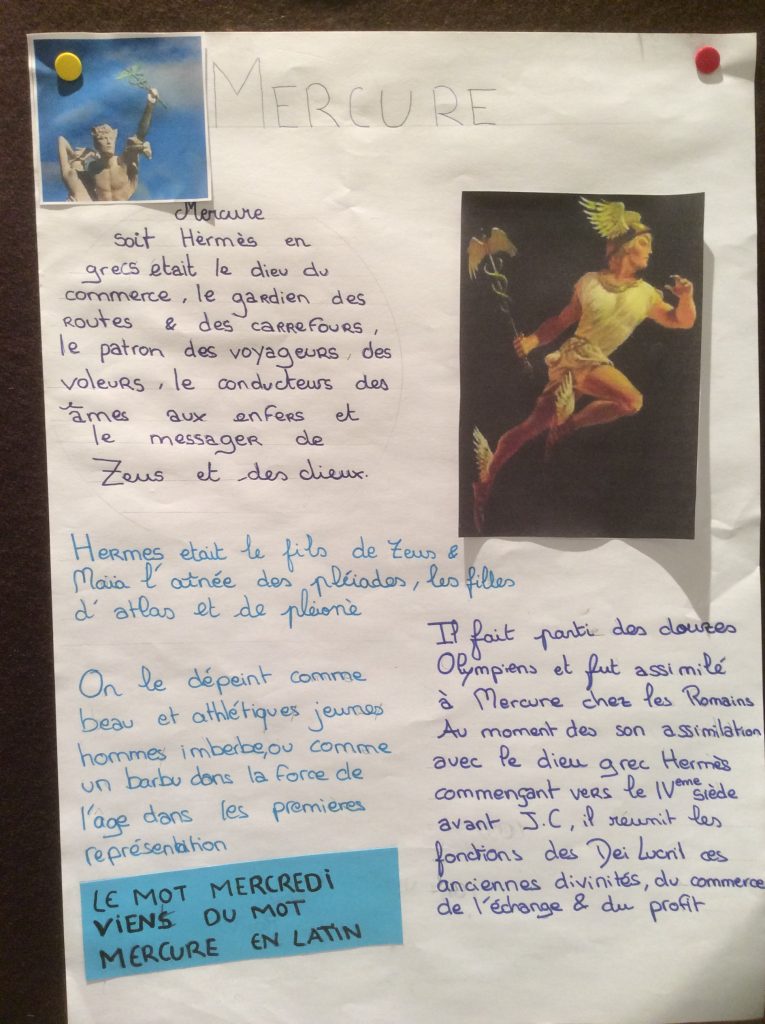 MERCURE
Mercure
soit Hèrmès en
grecs était le dieu du
commerce, le gardien des
ROUTES & des CARREFOURS,
le patron des voyageurs, des
voleurs, le conducteurs des
âmes aux enfers et
le messager de
Zeus et des dieux.
Hermes etait le fils de Zeus &
Maïa l'aînée des pléiades, les filles
d'atlas et de pléionè
On le dépeint comme
beau et athlétiques jeunes
hommes imberbe, ou comme
un barbu dans la force de
l'age dans les premières
représentation
LE MOT MERCREDI
VIENS DU MOT
MERCURE EN LATIN
Il fait parti des douzes
Olympiens et fut assimilé
à Mercure chez les Romains
Au moment des son assimilation
avec le dieu grec Hermès
commençant vers le IVeme siècle
avant J.C, il réunit les
fonctions des Dei Lucril ces
anciennes divinités, du commerce
de l'échange & du profit